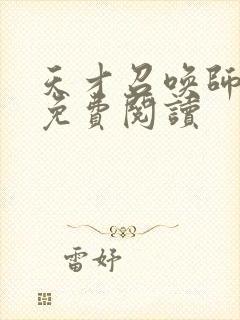 天才召喚師
免費閱讀
雷妤